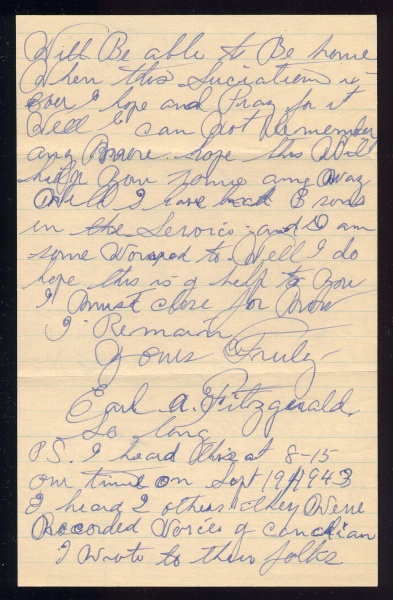 Will Be able to Be home
When this Suciation is
over I hope and Pray for it
Well I can Not Remember
any More. hope this Will
help you some any Way
Well I have 3 sons
in the Service and I am
some Worried to Well I do
hope this is a help to you
I Must close for Now
I Remain
Yours Truly
Earl A. Fitzgerald.
So long
P.S. I heard this at 8-15
our time on Sept 19/1943
I heard 2 others they Were
Recorded Voices of
I Wrote to their folks